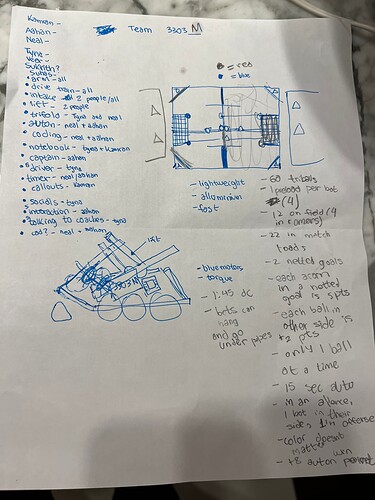 Kamran -
Ashan -
Neal -
Team 3303 M
Tyne -
Veer -
Sukrith?
Suhas -
• arm - all
• drive train - all
• intake - 2 people/all
• lift - 2 people
• trifold - Tyno and neal
• auton - neal + ashan
• coding - neal + ashan
• notebook - tyno + Kamran
• captain - ashan
• driver - tyno
• timer - neal/ashan
• callouts - Kamran
• socials - tyno
• interaction - ashan
• talking to coaches - tyno
• cad? - neal + ashan
• = red
• = blue
- lightweight
- alluminium
- fast
lift
3303M
- blue motors
- torque
- 1:45 dc
- bots can
hang
and go
under pipes
- 60 triballs
- 1 preload per bot
(4)
- 12 on field (4
in corners)
- 22 in match
loads
- 2 netted goals
- each acorn
in a netted
goal is 5 pts
- each ball in
other side is
+2 pts
- only 1 ball
at a time
- 15 sec auto
- in an aliance,
1 bot in their
side, 1 in offense
- color doesnt
matter
- +8 auton win